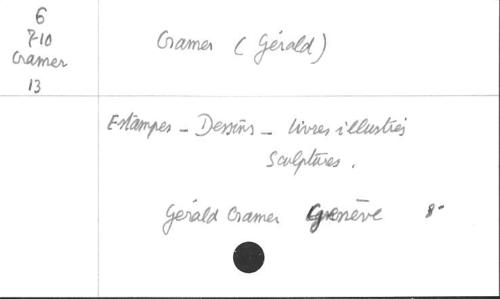 6
7-10
Cramer
13
Cramer (Gérald)
Estampes - Dessins - Livres illustrés
Sculptures.
Gérald Cramer Genève 8-